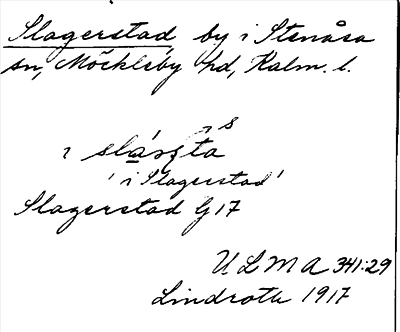 Slagerstad, by i Stenåsa
sn, Möckleby hd, Kalm. l.
ı s
ı slásşta
'i Slagerstad'
Slagerstad G 17
ULMA 341:29
Lindroth 1917